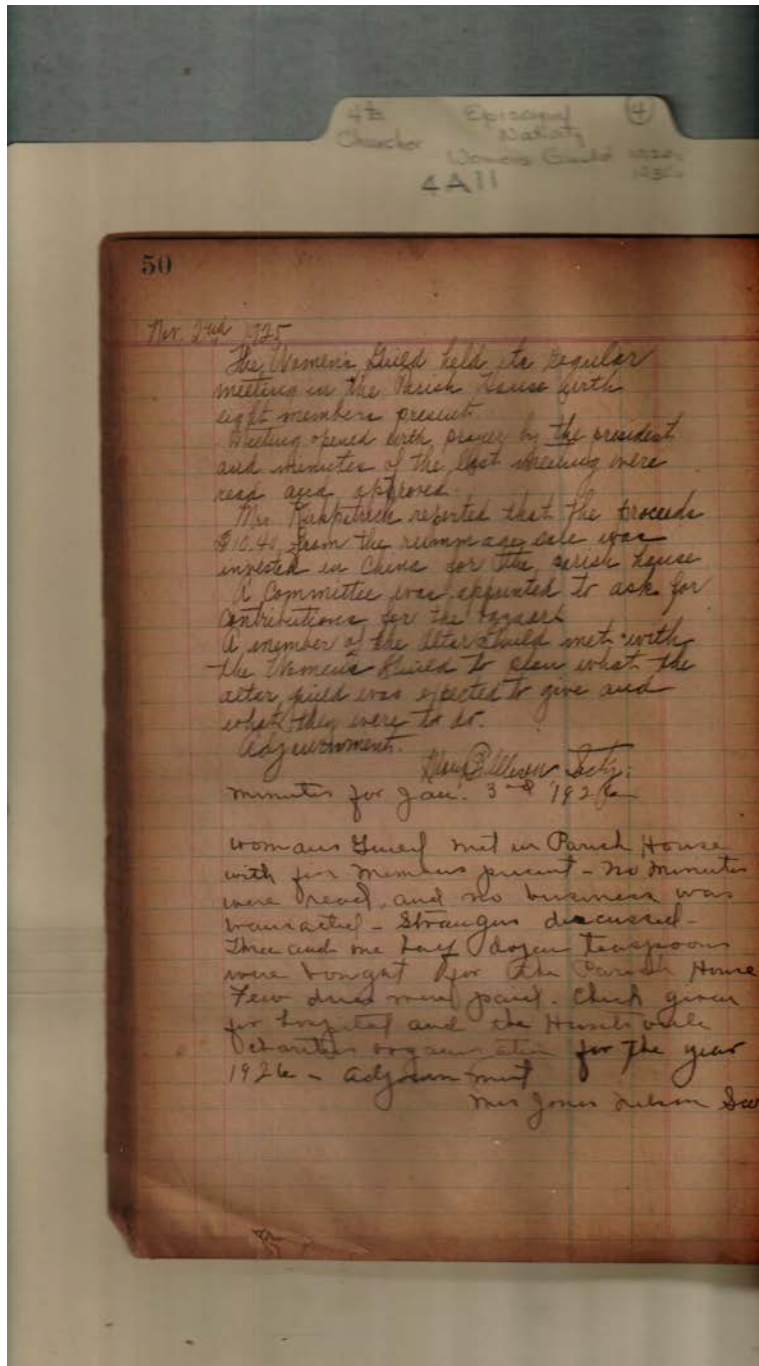 4th Episcopal ④
Churches Nativity
Womens Guild
4A11
50
Nov. 2nd 1925
The Women's Guild held its regular
meeting in the Parish House with
eight members present.
Meeting opened with prayer by the president
and minutes of the last meeting were
read and approved.
Mrs. Kirkpatrick reported that the proceeds
$10.40 from the rummage sale was
invested in China for the parish house
A Committee was appointed to ask for
contributions for the bazaar.
A member of the Altar Guild met with
the Women's Guild to plan what the
altar guild was expected to give and
what they were to do.
Adjournment.
Secty.
Minutes for Jan. 3rd 1926
Womans Guild met in Parish House
with members present - No Minutes
were read, and no business was
transacted - Strangers discussed -
Three and one half dozen teaspoons
were bought for the Parish House
Few dues were paid. Check given
for hospital and the Huntsville
Charities organization for the year
1926 - Adjournment
Mrs Jones Nelson Sec